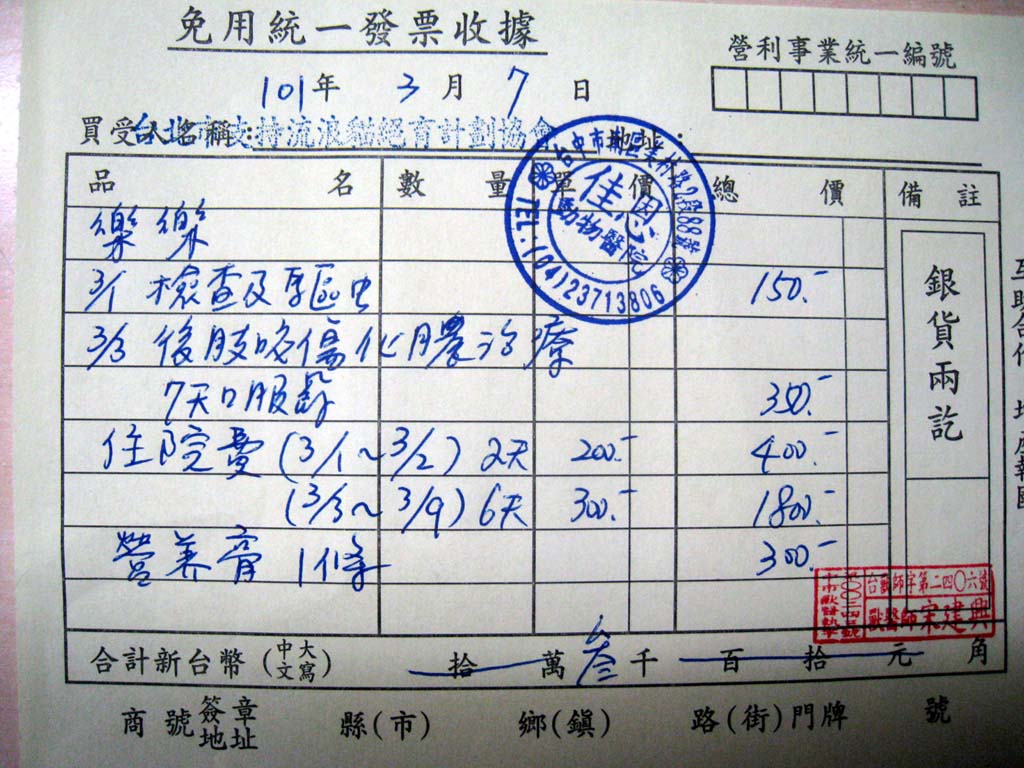 免用統一發票收據
營利事業統一編號
101年 3月 7日
買受人名稱： 地址：
台北市支持流浪貓絕育計劃協會
品名 數量 單價 總價 備註
樂樂
3/1 檢查及驅虫 150.-
3/3 後肢咬傷化膿治療
7天口服 350.-
住院費 (3/1~3/2) 2天 200.- 400.-
(3/3~3/9) 6天 300.- 1800.-
營养膏 1條 300.-
銀貨兩訖
台中市 路2段88號
佳恩
動物醫院
TEL:(04)23713806
台獸師字第二四〇六號
獸醫師宋建興
合計新台幣(中文大寫) 拾 萬 叁 千 百 拾 元 角
商號簽章地址 縣(市) 鄉(鎮) 路(街)門牌 號